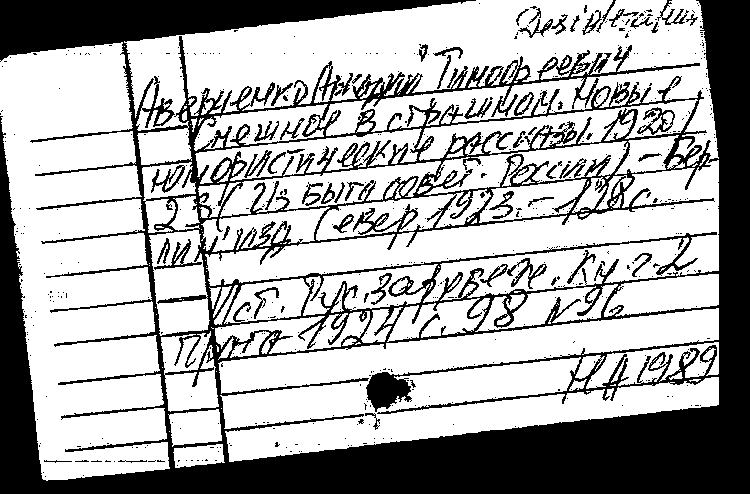 Desiderata
Аверченко Аркадий Тимофеевич
Смешное в страшном. Новые
юмористические рассказы. 1920/
23 (Из быта совет. России). - Бер-
лин: изд. Север, 1923. - 128 с.
Ист. Рус. зарубеж. Кн. г. 2
Прага 1924 с. 98 № 96
НА 1989